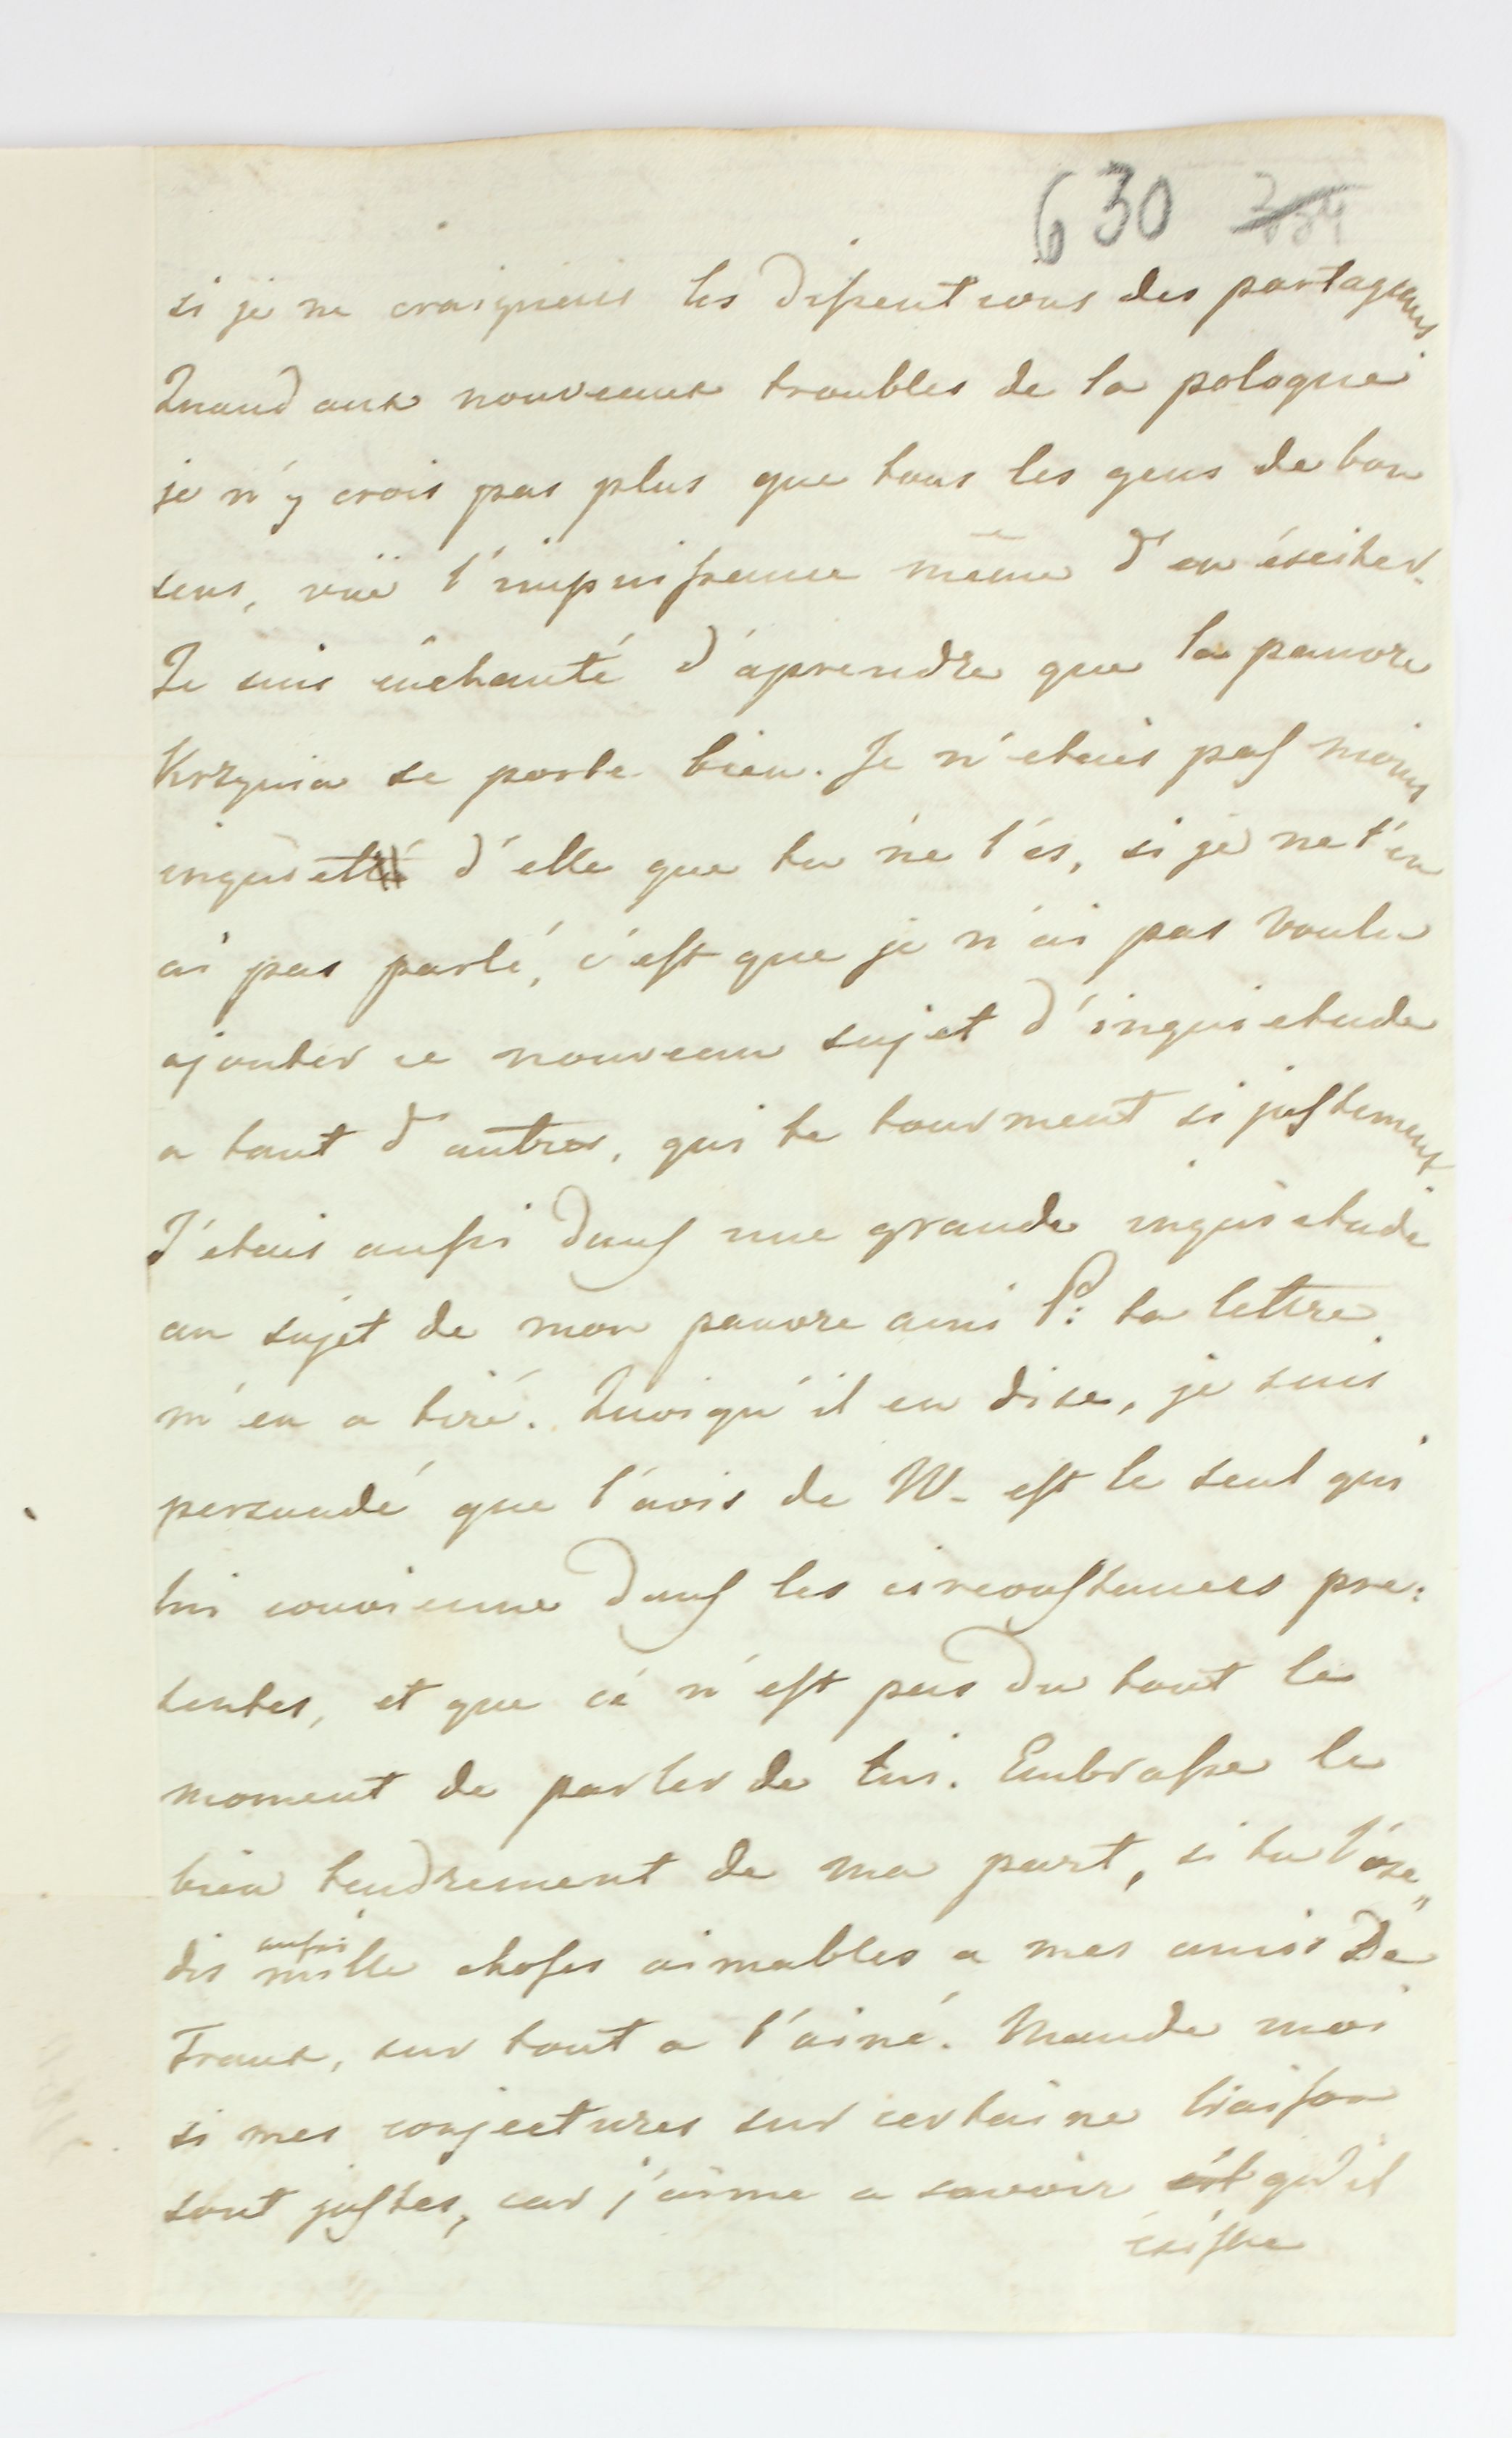 630
si je ne craignais les dissentions des partageans.
Quand aux nouveaux troubles de la pologne
je n'y crois pas plus que tous les gens de bon
sens, vuë l'impuissance même d'en éxciter.
Je suis enchanté d'aprendre que la pauvre
Krzysia se porte bien. Je n'etais pas moins
inquiet d'elle que tu ne l'és, si je ne t'en
ai pas parlé, c'est que je n'ai pas voulu
ajouter ce nouveau sujet d'inquietude
a tant d'autres, qui te tourment si justement.
J'etais aussi dans une grande inquietude
au sujet de mon pauvre ami P: ta lettre
m'en a tiré. Quoiqu'il en dise, je suis
persuadé que l'avis de W- est le seul qui
lui convienne dans les circonstances pre:
sentes, et que ce n'est pas du tout le
moment de parler de lui. Embrasse le
bien tendrement de ma part, si tu l'ose,,
dis aussi mille choses aimables a mes amis De
Traux, sur tout a l'ainé. Mande moi
si mes conjectures sur certaine liaison
sont justes, car j'aime a savoir qu'il
éxiste